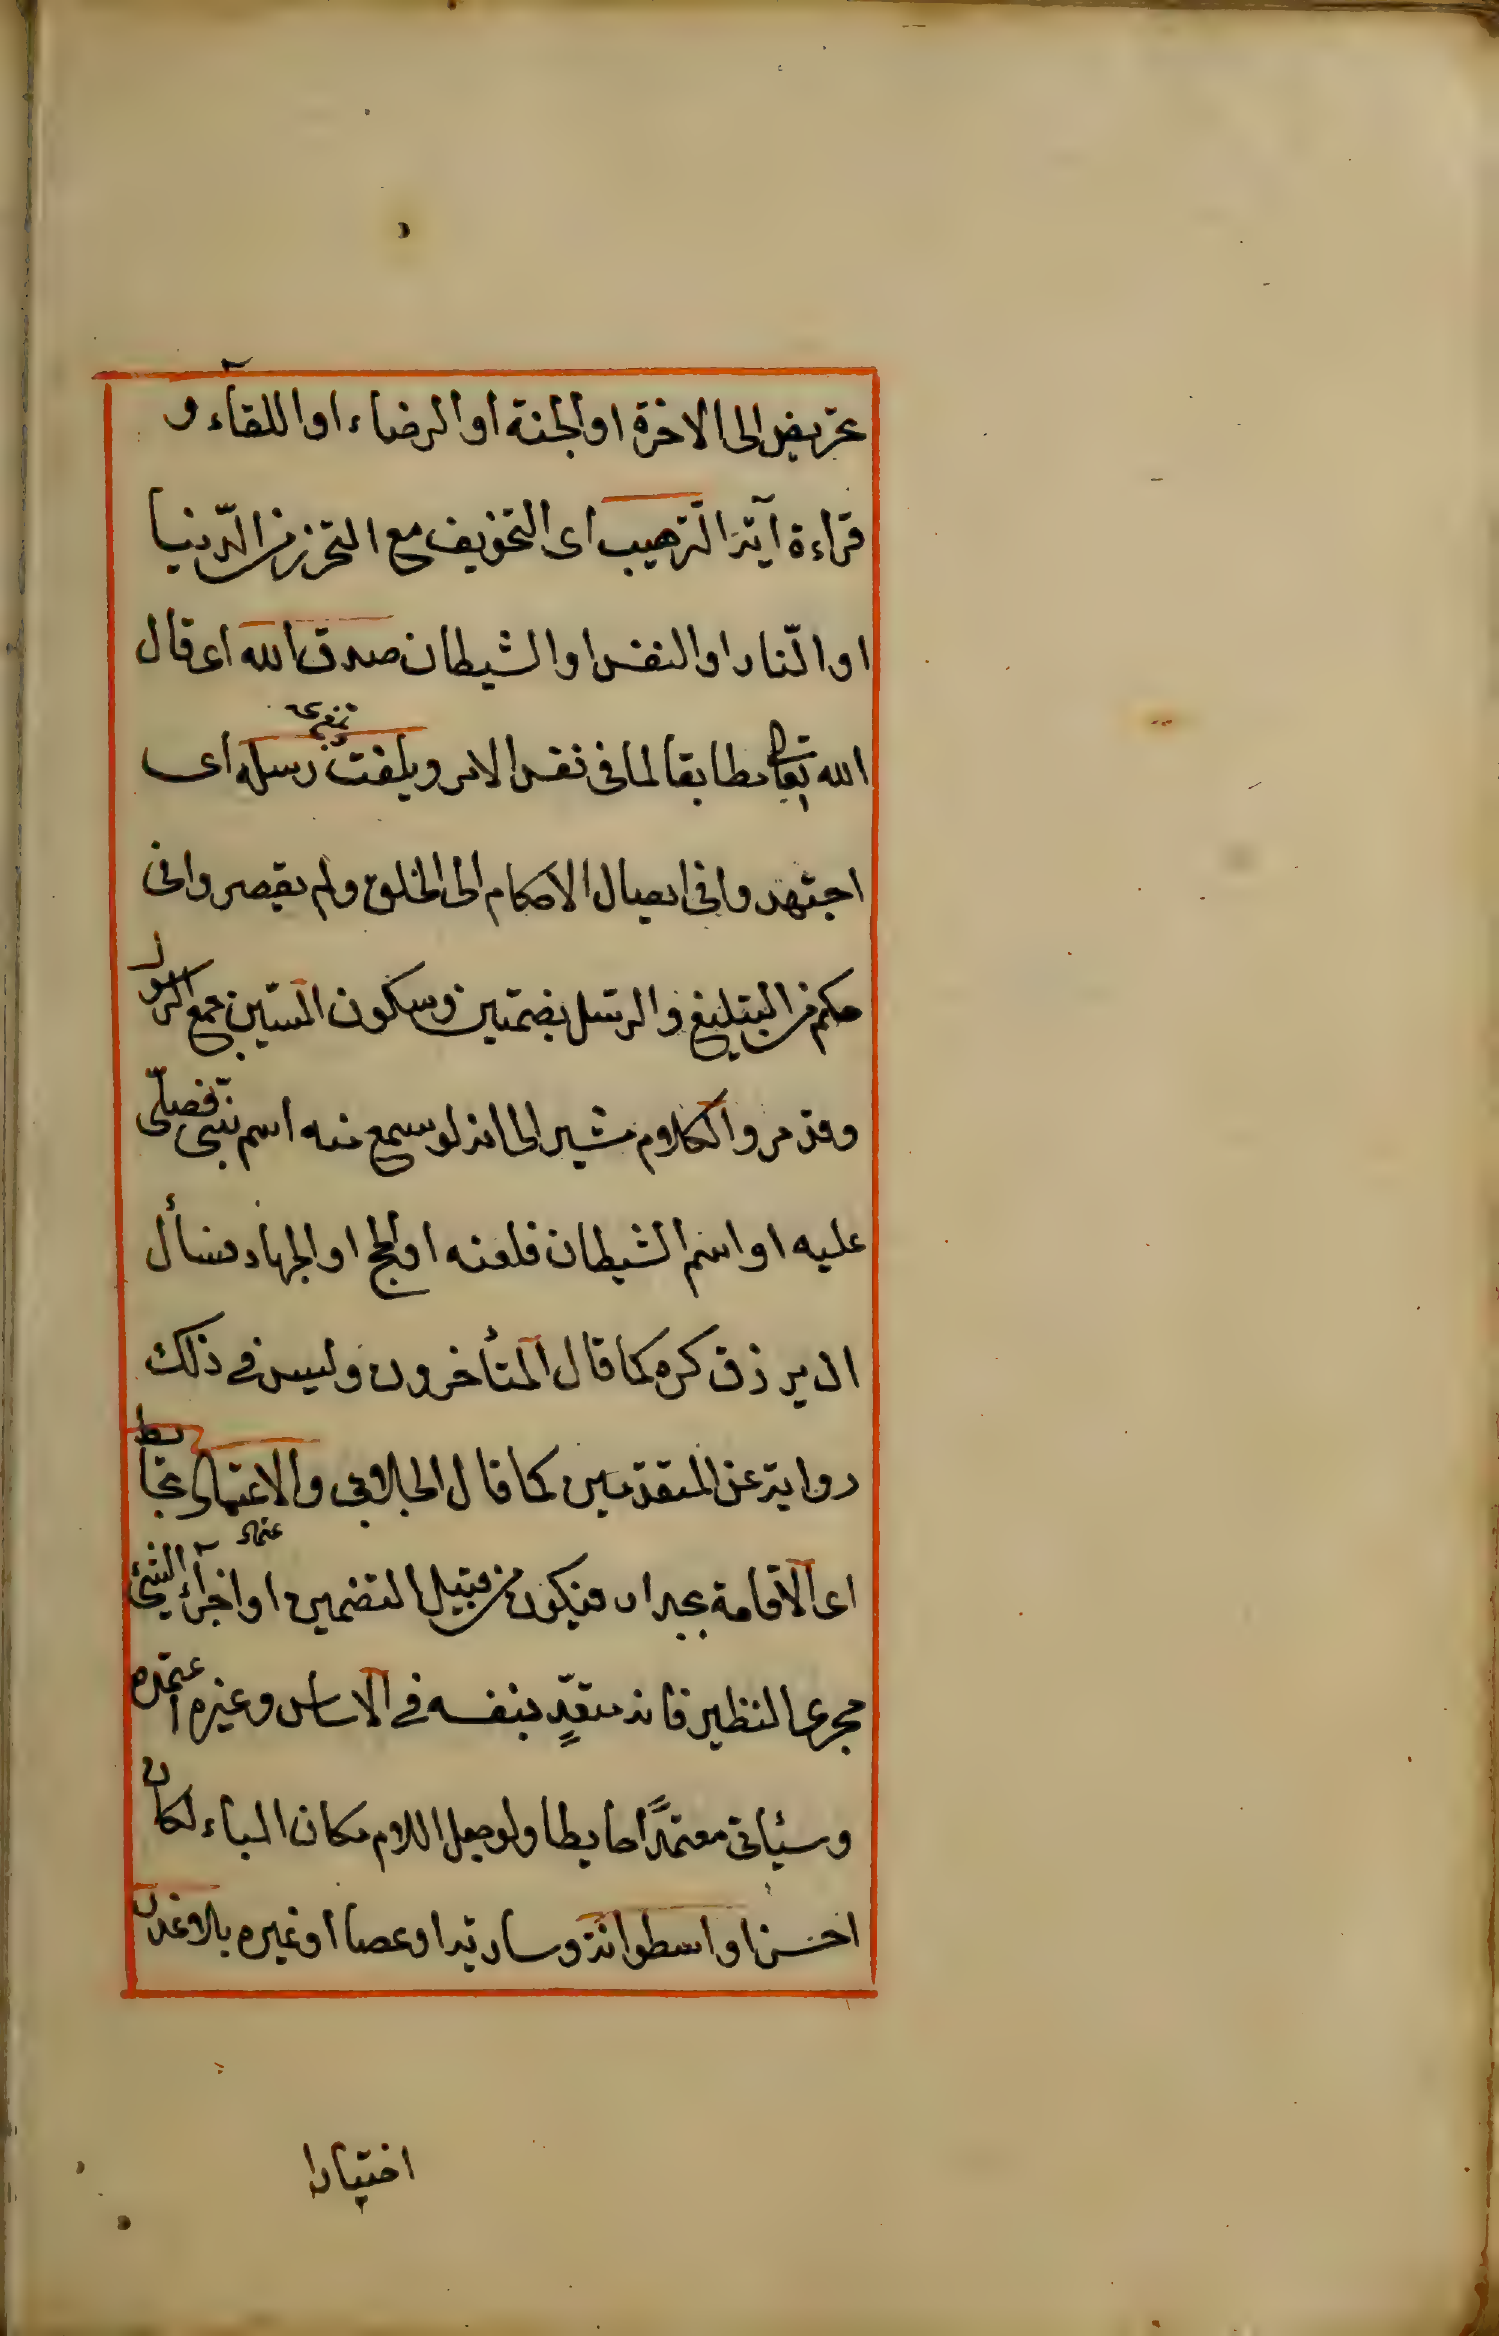 عريض الى الاخرة او الجنة او الرضاء او اللقآء و
قراءة آية الترهيب اى التخويف مع التحرز من الدّنيا
او النّار او النفس او الشيطان صدق الله اى قال
الله تعالى مطابقا لما فى نفس الامر وبلغت رسله اى
اجتهدوا فى ايصال الاحكام الى الخلق ولم يقصروا فى
حكم من التبليغ والرسل بضمتين وسكون السّين جمع الرسول
وقد مر والكلام مشير الى انه لو سمع منه اسم نبىّ فصلّى
عليه او اسم الشيطان فلعنه او الحج او الجهاد فسأل
ان يرزق كره كما قال المتأخرون وليس فى ذلك
رواية عن المتقدمين كما قال الجلابى والاعتماد بحايط
اى الاقامة بجدار فيكون من قبيل التضمين او اجرآء الشيئ
مجرى النظير فانه متعدٍّ بنفسه فى الاساس وغيره اعتمده
وسيأتى معتمدًا حايطا ولو جعل اللام مكان الباء لكان
احسن او اسطوانة وسارية او عصا او غيره بلا عذر
اختيارا